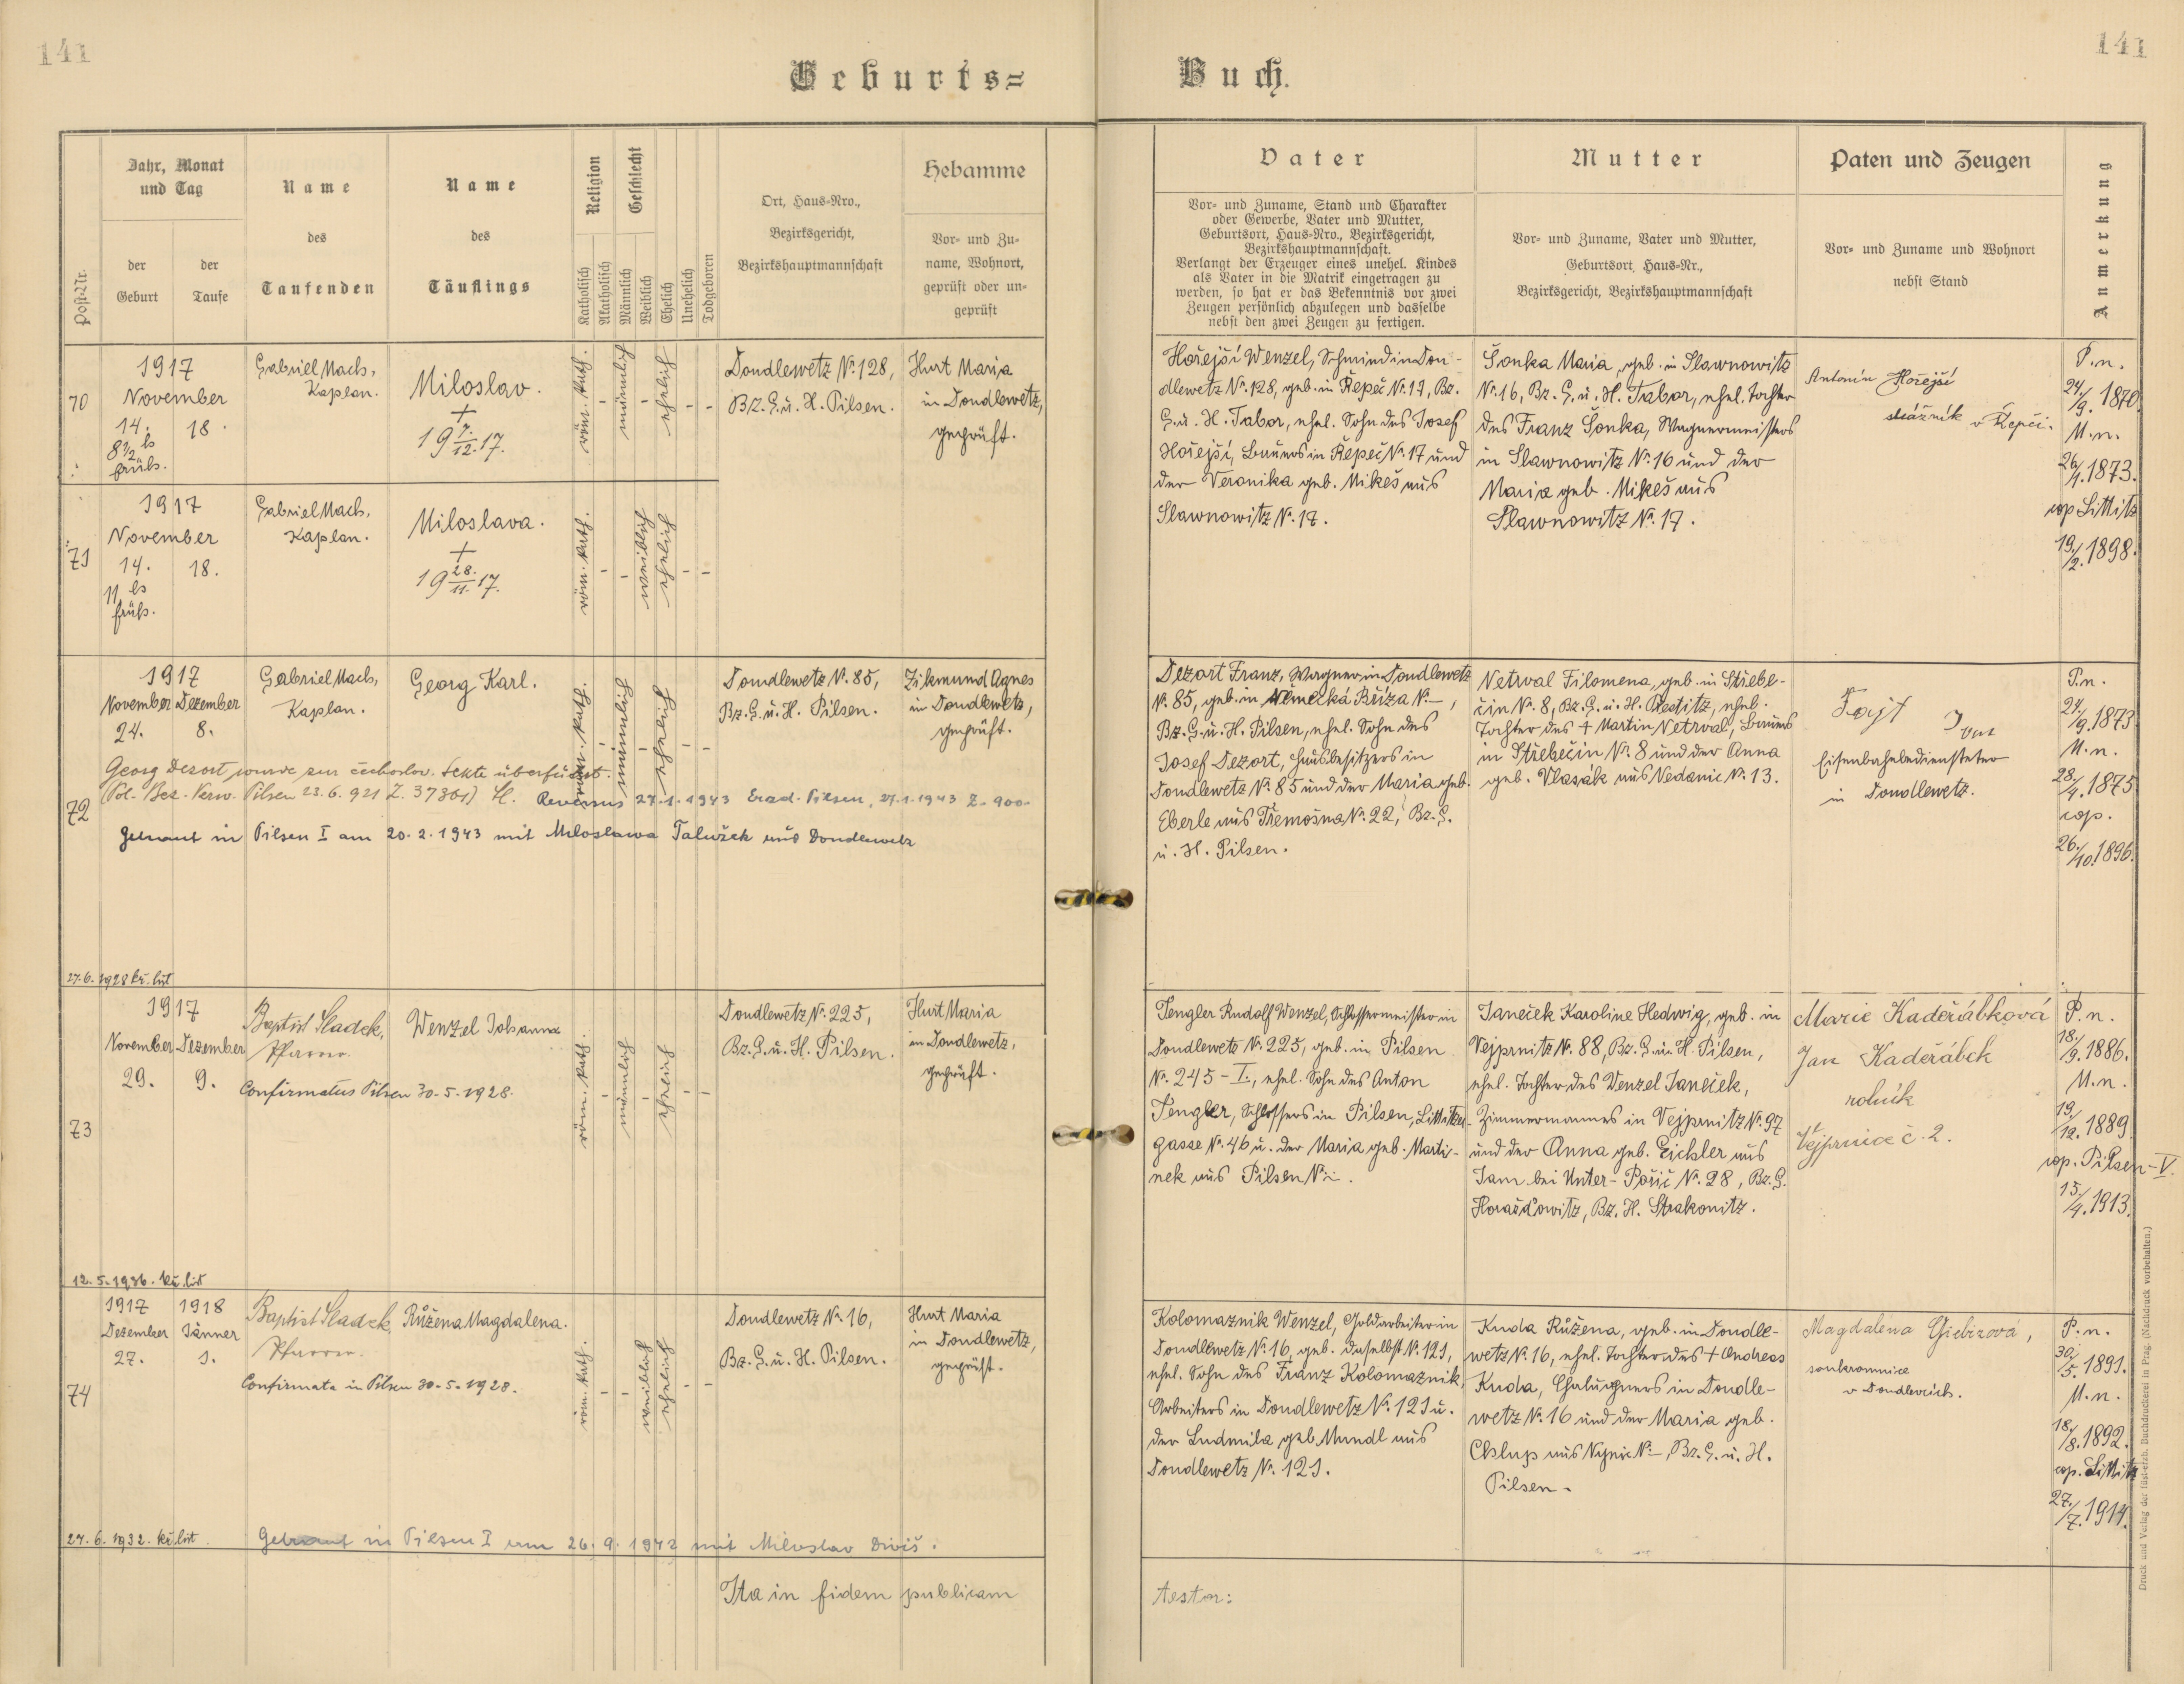 141
141
Geburts=
Buch.
Post-Nr.
Jahr, Monat
und Tag
der
Geburt
der
Taufe
Name
des
Taufenden
Name
des
Täuflings
Religion
Katholisch
Akatholisch
Geschlecht
Männlich
Weiblich
Ehelich
Unehelich
Todgeboren
Ort, Haus=Nro.,
Bezirksgericht,
Bezirkshauptmannschaft
Hebamme
Vor= und Zu=
name, Wohnort,
geprüft oder un=
geprüft
Vater
Vor= und Zuname, Stand und Charakter
oder Gewerbe, Vater und Mutter,
Geburtsort, Haus=Nro., Bezirksgericht,
Bezirkshauptmannschaft.
Verlangt der Erzeuger eines unehel. Kindes
als Vater in die Matrik eingetragen zu
werden, so hat er das Bekenntnis vor zwei
Zeugen persönlich abzulegen und dasselbe
nebst den zwei Zeugen zu fertigen.
Mutter
Vor= und Zuname, Vater und Mutter,
Geburtsort, Haus=Nr.,
Bezirksgericht, Bezirkshauptmannschaft
Paten und Zeugen
Vor= und Zuname und Wohnort
nebst Stand
Anmerkung
70
1917
November
14. 18.
8 1/2 h
früh.
Gabriel Mach,
Kaplan.
Miloslav.
+
19 7./12. 17.
röm. kath.
-
männlich
-
ehelich
- -
Doudlewetz Nr. 128,
Bz. G. u. H. Pilsen.
Hurt Maria
in Doudlewetz,
geprüft.
Hořejší Wenzel, Schmied in Dou-
dlewetz Nr. 128, geb. in Řepeč Nr. 17, Bz.
G. u. H. Tabor, ehel. Sohn des Josef
Hořejší, Bauers in Řepeč Nr. 17 und
der Veronika geb. Mikeš aus
Slawnowitz Nr. 17.
Šonka Maria, geb. in Slawnowitz
Nr. 16, Bz. G. u. H. Tabor, ehel. Tochter
des Franz Šonka, Wagnermeisters
in Slawnowitz Nr. 16 und der
Maria geb. Mikeš aus
Slawnowitz Nr. 17.
Antonín Hořejší
strážník v Řepči.
P. n.
24./9. 1870.
M. n.
26./1. 1873.
cop Littitz
19./2. 1898.
71
1917
November
14. 18.
11 h
früh.
Gabriel Mach,
Kaplan.
Miloslava.
+
19 28./11. 17.
röm. kath.
- -
weiblich
ehelich
- -
72
1917
November Dezember
24. 8.
Gabriel Mach,
Kaplan.
Georg Karl.
röm. kath.
-
männlich
-
ehelich
- -
Doudlewetz Nr. 85,
Bz. G. u. H. Pilsen.
Zikmund Agnes
in Doudlewetz,
geprüft.
Georg Dezort wurde zur čechoslov. Sekte überführt.
(Pol. Bez. Verw. Pilsen 23. 6. 921 Z. 37361) Reversus 27. 1. 1943 Pilsen, 27. 1. 1943 Z. 900
Getraut in Pilsen I am 20. 2. 1943 mit Miloslawa aus Doudlewetz
Dezort Franz, Wagner in Doudlewetz
Nr. 85, geb. in Německá Bříza Nr. –,
Bz. G. u. H. Pilsen, ehel. Sohn des
Josef Dezort, Hausbesitzers in
Doudlewetz Nr. 85 und der Maria geb.
Eberle aus Třemošna Nr. 22, Bz. G.
u. H. Pilsen.
Netrval Filomena, geb. in Střebe-
čin Nr. 8, Bz. G. u. H. Přestitz, ehel.
Tochter des + Martin Netrval, Bauers
in Střebečin Nr. 8 und der Anna
geb. Vlasák aus Vedanic Nr. 13.
Fajt
Eisenbahnbediensteter
in Doudlewetz.
P. n.
24./9. 1873.
M. n.
28./4. 1875
cop.
26./10. 1896.
27. 6. 1928 kř. list
73
1917
November Dezember
29. 9.
Baptist Sladek,
Pfarrer.
Wenzel Johanna
röm. kath.
-
männlich
-
ehelich
- -
Confirmatus Pilsen 30. 5. 1928.
Doudlewetz Nr. 225,
Bz. G. u. H. Pilsen.
Hurt Maria
in Doudlewetz,
geprüft.
Tengler Rudolf Wenzel, Schlossermeister in
Doudlewetz Nr. 225, geb. in Pilsen
Nr. 245 – I., ehel. Sohn des Anton
Tengler, Schlossers in Pilsen, Littitzer-
gasse Nr. 46 u. der Maria geb. Marti-
nek aus Pilsen Nr. –.
Janeček Karoline Hedwig, geb. in
Vejprnitz Nr. 88, Bz. G. u. H. Pilsen,
ehel. Tochter des Wenzel Janeček,
Zimmermannes in Vejprnitz Nr. 97
und der Anna geb. Eichler aus
Jam bei Unter-Pořič Nr. 28, Bz. G.
Horažďowitz, Bz. H. Strakonitz.
Marie Kadeřábková
Jan Kadeřábek
rolník
Vejprnice č. 2.
P. n.
18./9. 1886.
M. n.
19./12. 1889
cop. Pilsen – V.
15./4. 1913.
12. 5. 1936. kř. list
74
1917 1918
Dezember Jänner
27. 1.
Baptist Sladek,
Pfarrer.
Růžena Magdalena.
röm. kath.
- -
weiblich
ehelich
- -
Confirmata in Pilsen 30. 5. 1928.
Doudlewetz Nr. 16,
Bz. G. u. H. Pilsen.
Hurt Maria
in Doudlewetz,
geprüft.
Kolomaznik Wenzel, Goldarbeiter in
Doudlewetz Nr. 16, geb. daselbst Nr. 121,
ehel. Sohn des Franz Kolomaznik,
Arbeiters in Doudlewetz Nr. 121 u.
der Ludmila geb. Mundl aus
Doudlewetz Nr. 121.
Kuda Růžena, geb. in Doudle-
wetz Nr. 16, ehel. Tochter des + Andreas
Kuda, Chaluppners in Doudle-
wetz Nr. 16 und der Maria geb.
Chlup aus Nynic Nr. –, Bz. G. u. H.
Pilsen.
Magdalena
soukromnice
v Doudlevcích.
P. n.
30./5. 1891.
M. n.
18./8. 1892.
cop. Littitz
27./7. 1914.
27. 6. 1932. kř. list. Getraut in Pilsen I am 26. 9. 1942 mit Miloslav Diviš.
Ita in fidem publicam
testor:
Druck und Verlag der fürst-erzb. Buchdruckerei in Prag. (Nachdruck vorbehalten.)